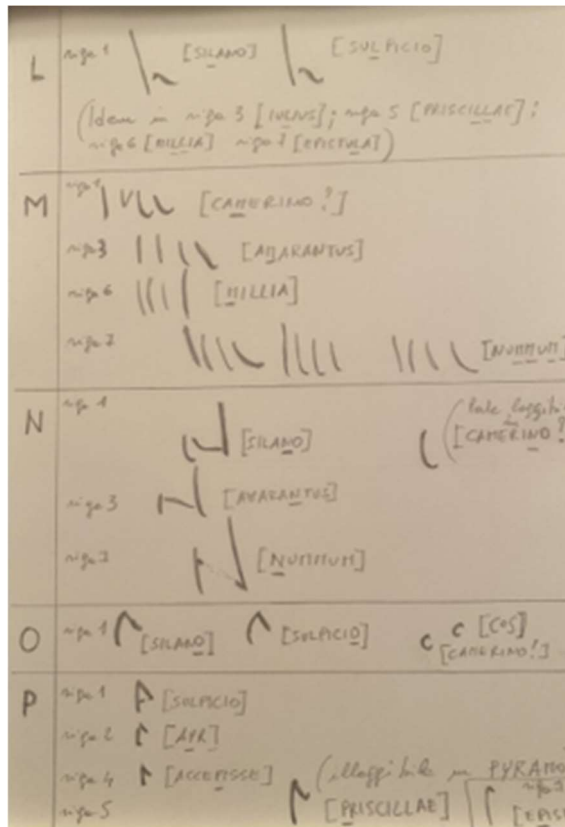 L riga 1 [SILANO] [SULPICIO]
(Idem in riga 3 [IULIUS]; riga 5 [PRISCILLAE];
riga 6 [MILLIA] riga 7 [EPICTULA])
M riga 1 [CAMERINO?]
riga 3 [AMARANTUS]
riga 6 [MILLIA]
riga 7 [NUMMUM]
N riga 1 [SILANO] [CAMERINO?
riga 3 [AMARANTUS]
riga 7 [NUMMUM]
O riga 1 [SILANO] [SULPICIO] [COS]
[CAMERINO?]
P riga 1 [SULPICIO]
riga 2 [APR]
riga 4 [ACCEPISSE] (illeggibile in PYRAMO
riga 5 [PRISCILLAE]